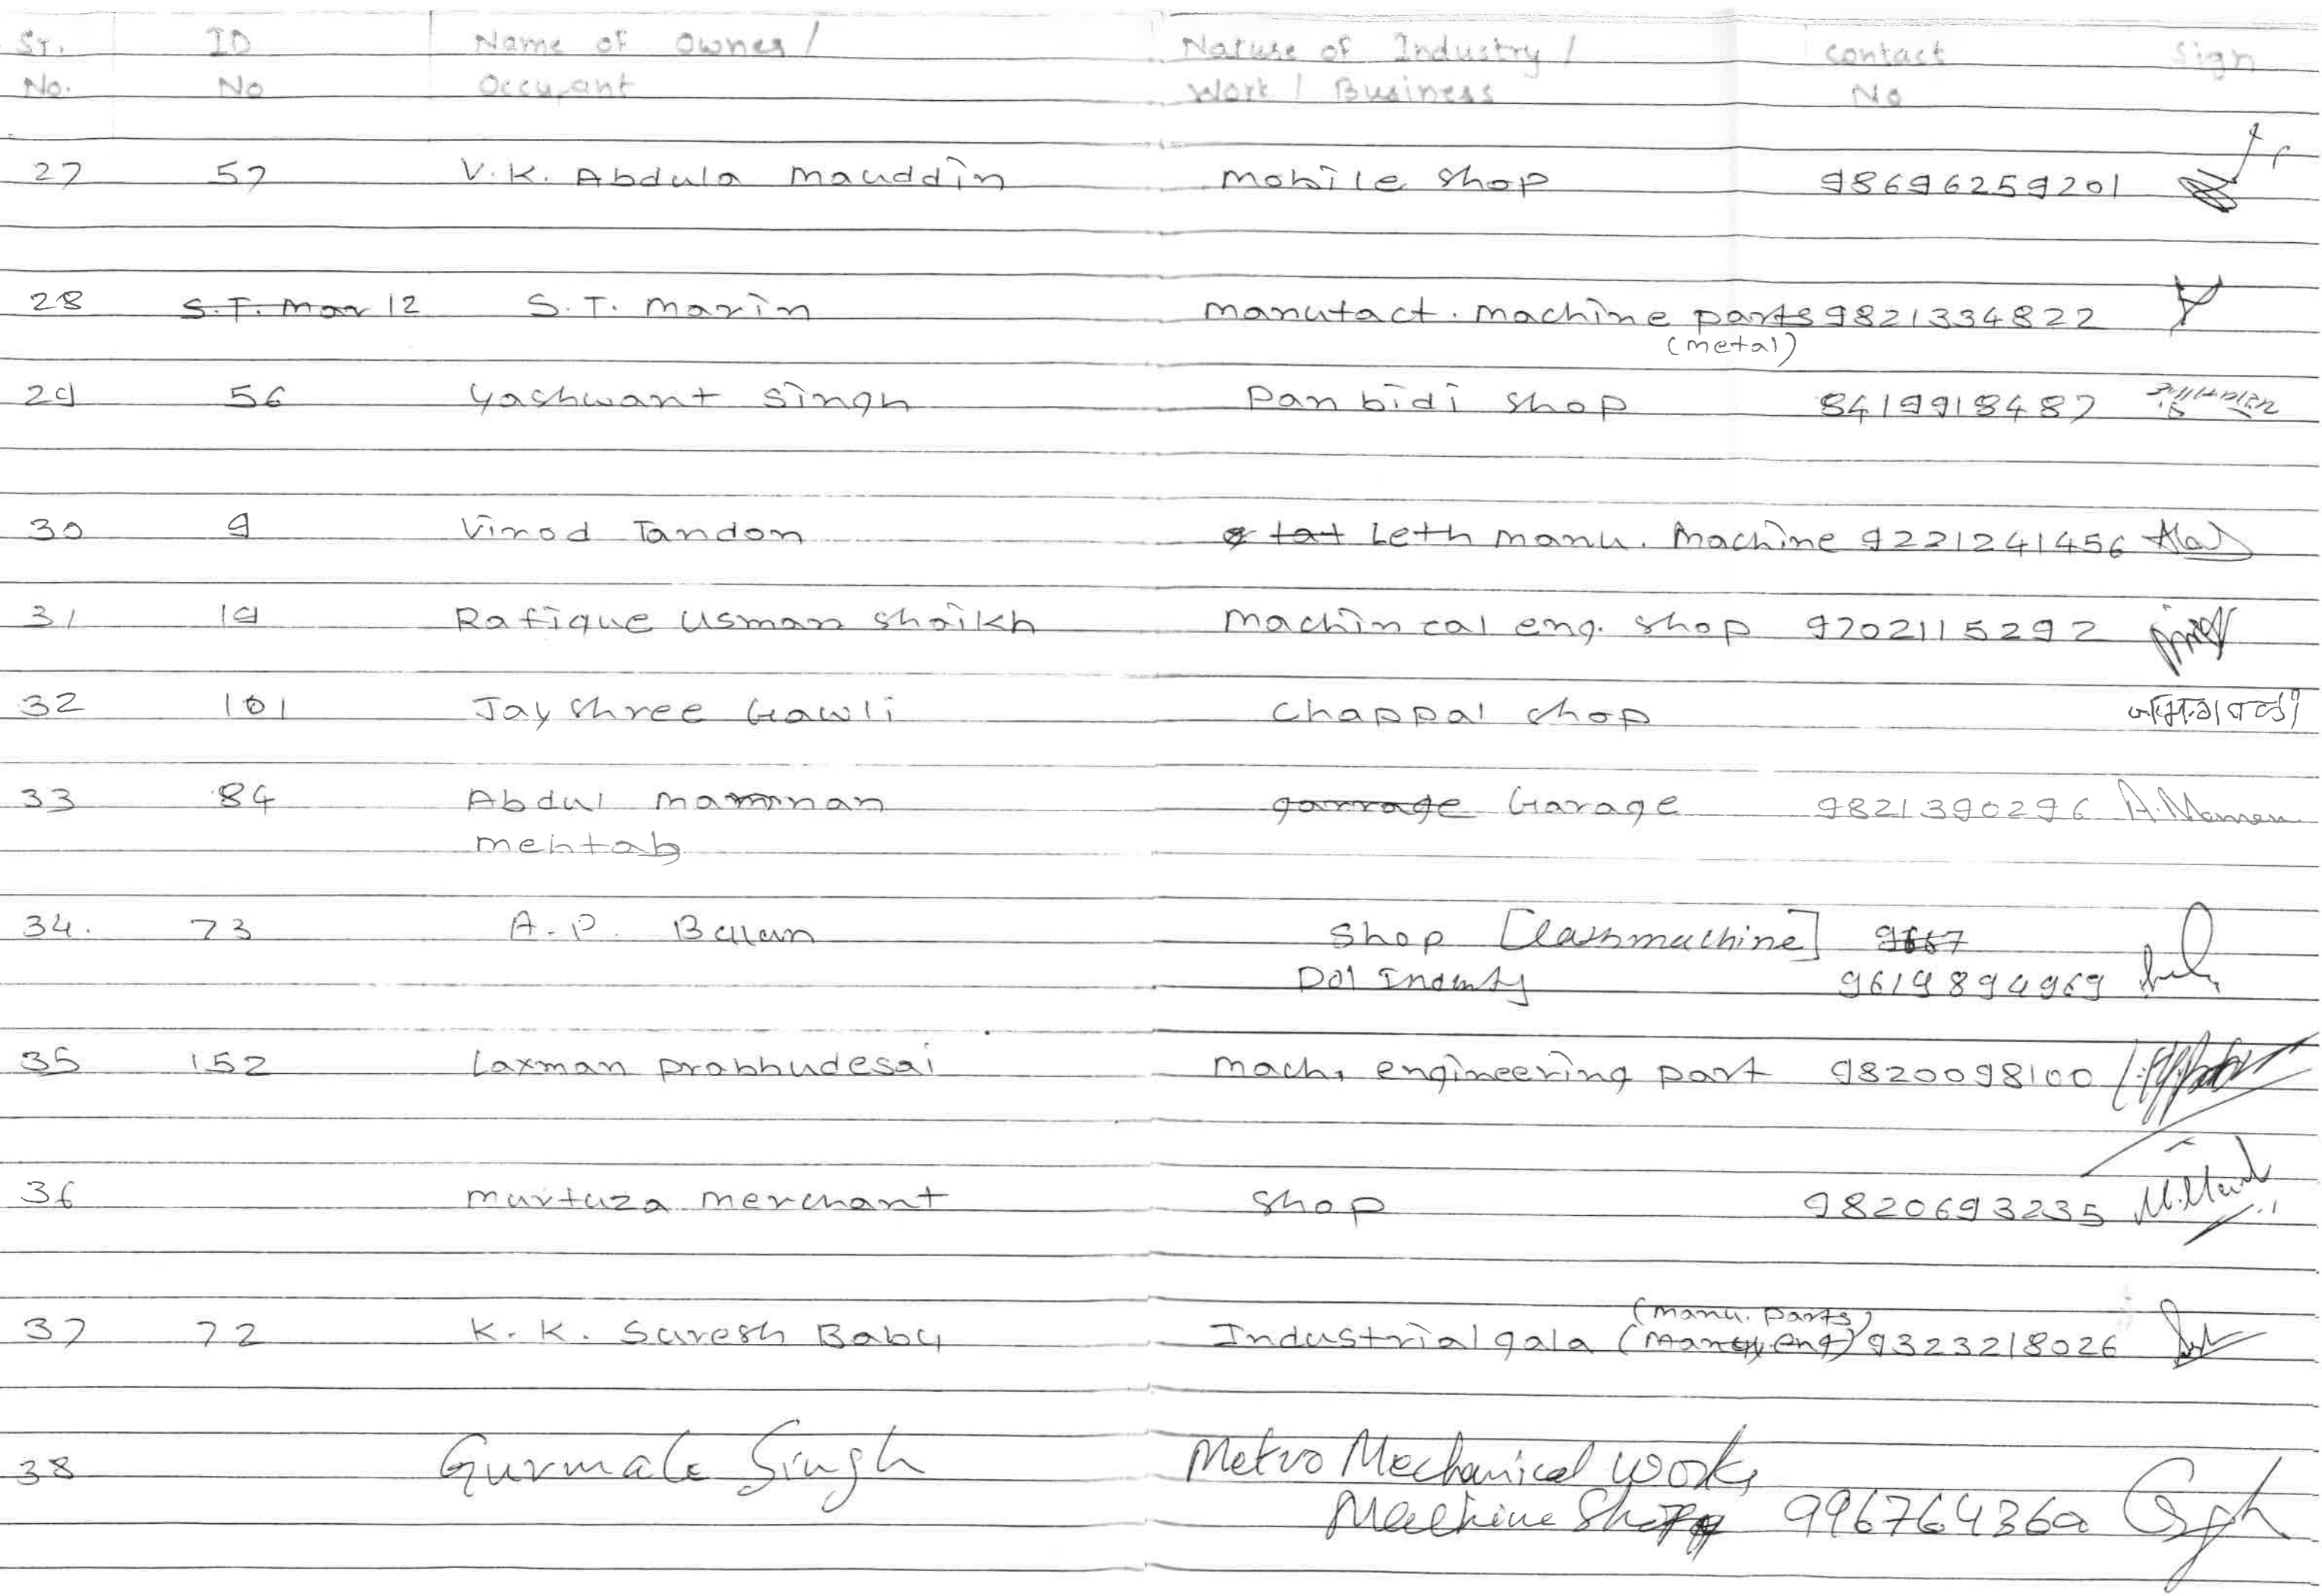 Sr. ID Name of Owner / Nature of Industry / Contact Sign
No. No Occupant Work / Business No
27 57 V.K. Abdula Mauddin Mobile Shop 98696259201
28 S.T. Mar 12 S.T. Marin Manufact. machine parts 9821334822
(metal)
29 56 Yashwant Singh Pan bidi shop 8419918487
30 9 Vinod Tandon Leth manu. Machine 9221241456
31 19 Rafique Usman Shaikh Machin cal eng. Shop 9702115292
32 101 Jayshree Gawli Chappal shop
33 84 Abdul mamnan garrage Garage 9821390296 A. Mannan
mehtab
34. 73 A.P. Balan Shop [Lashmachine] 9667
Dol Industy 9619894969
35 152 Laxman prabhudesai Mach. engineering part 9820098100
36 Murtuza Merchant Shop 9820693235
(manu. parts)
37 72 K.K. Suresh Babu Industrial gala eng) 9323218026
38 Gurmale Singh Metro Mechanical works
Machine Shop